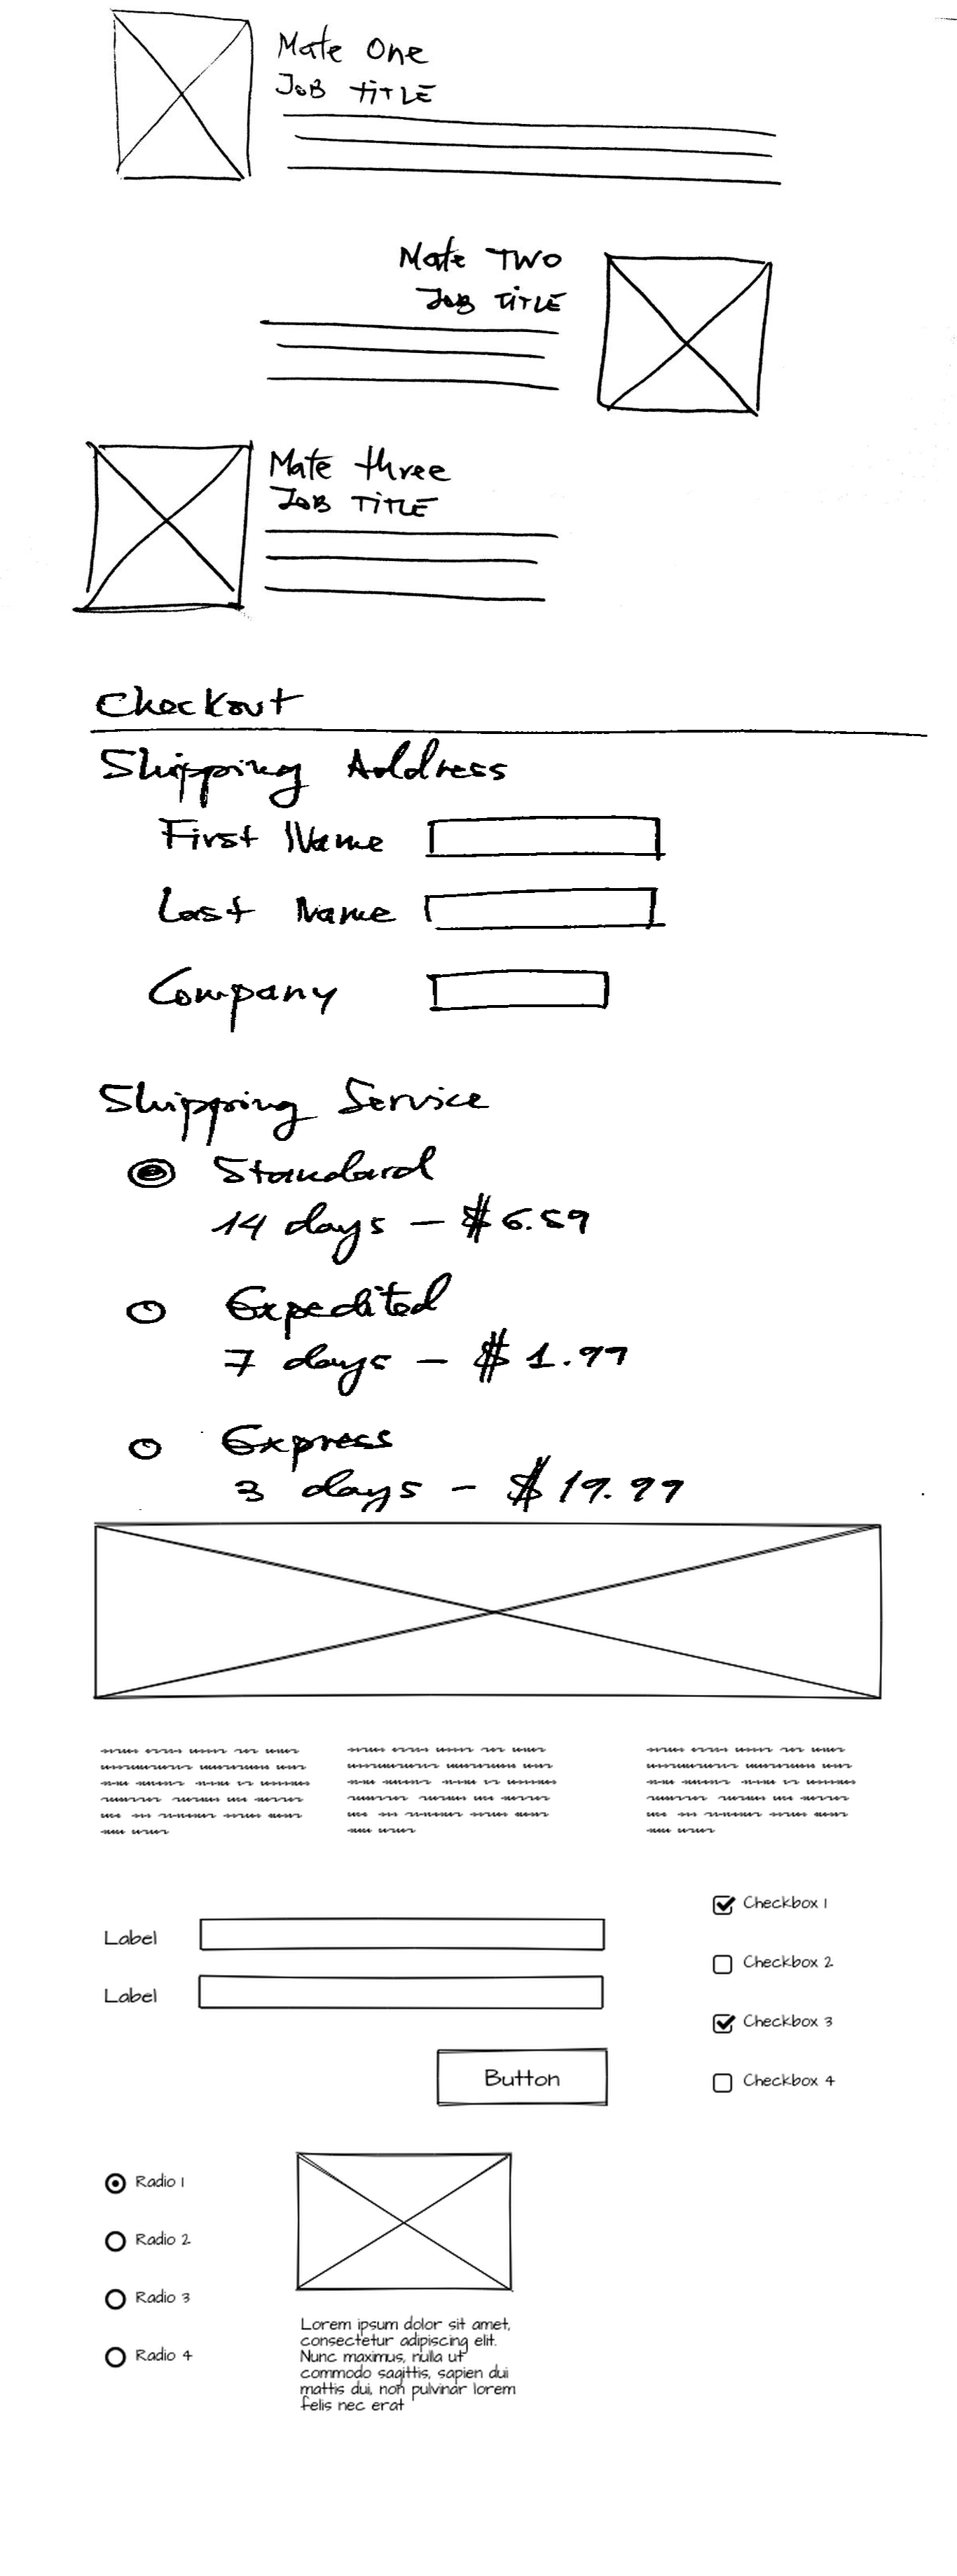 Mate One
JOB TITLE
Mate TWO
JOB TITLE
Mate three
JOB TITLE
Checkout
Shipping Address
First Name
Last Name
Company
Shipping Service
Standard
14 days — $6.59
Expedited
7 days — $1.99
Express
3 days — $19.99
Label
Label
Button
Checkbox 1
Checkbox 2
Checkbox 3
Checkbox 4
Radio 1
Radio 2
Radio 3
Radio 4
Lorem ipsum dolor sit amet,
consectetur adipiscing elit.
Nunc maximus, nulla ut
commodo sagittis, sapien dui
mattis dui, non pulvinar lorem
felis nec erat